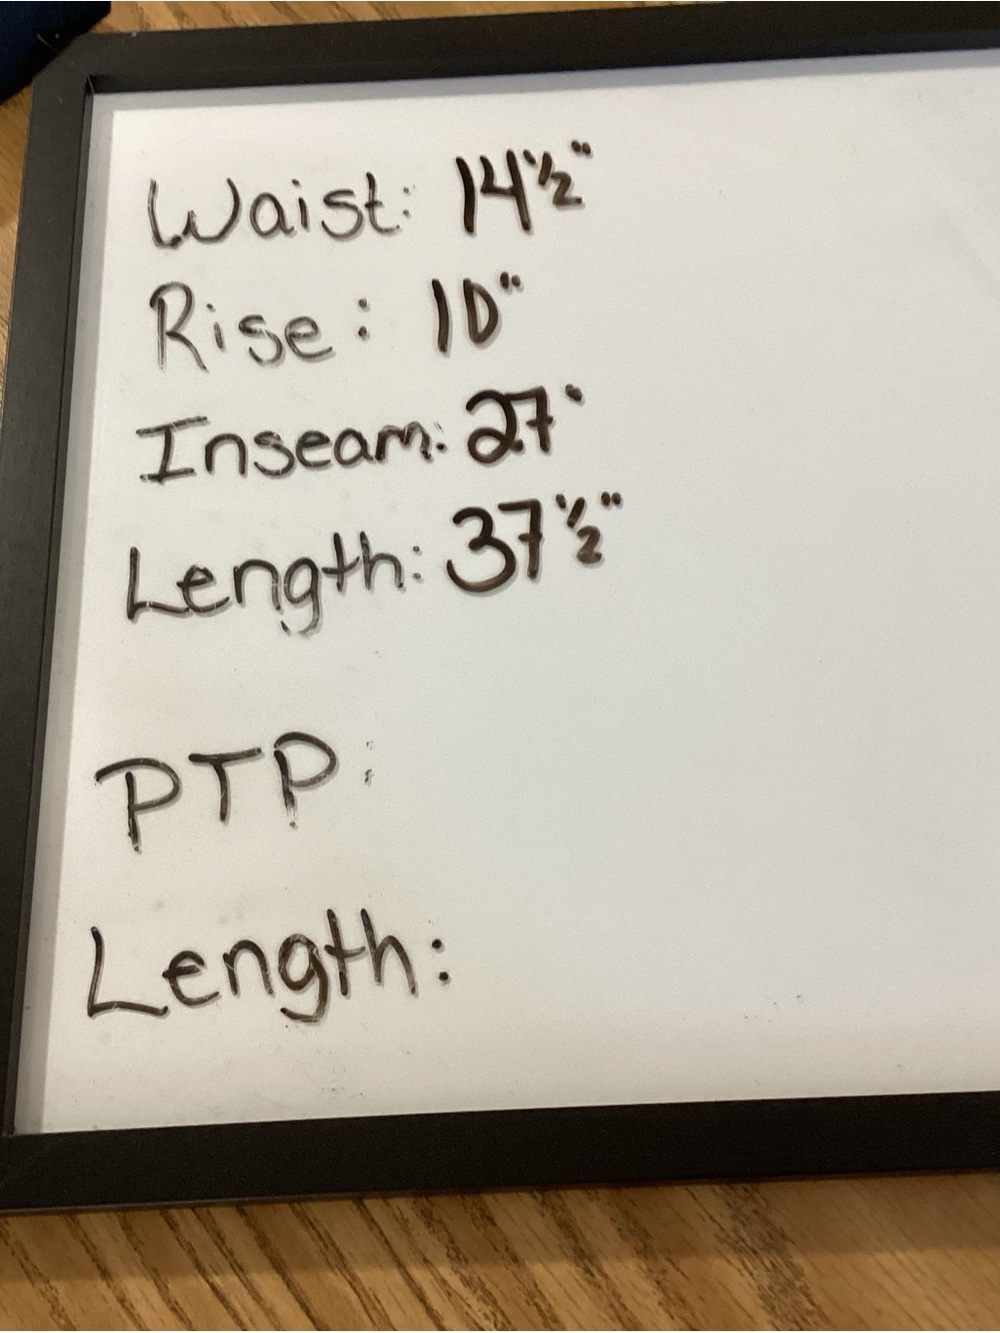 Waist: 14 1/2"
Rise: 10"
Inseam: 27"
Length: 37 1/2"
PTP:
Length: